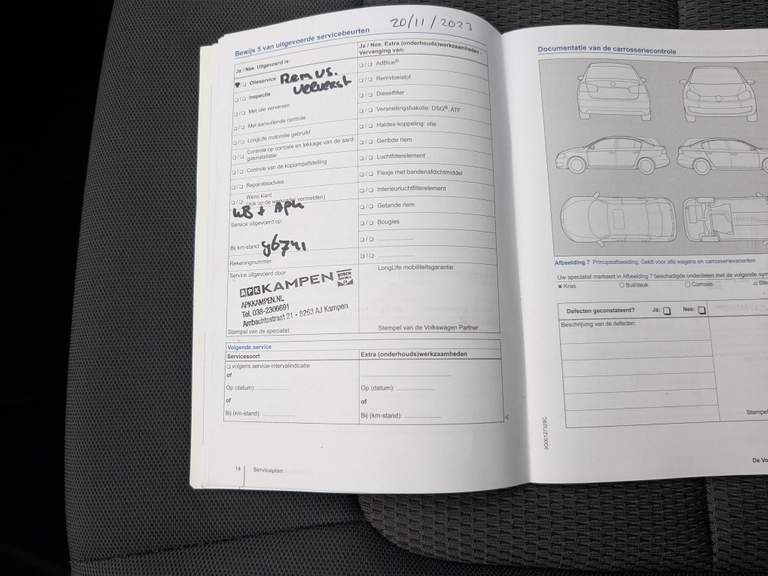 20/11/2023
Bewijs 5 van uitgevoerde servicebeurten
Ja / Nee: Uitgevoerd is:
Olieservice
Rem vs.
ververst
Inspectie
Met olie verversen
Met aanvullende controle
LongLife motorolie gebruikt
Controle op corrosie en lekkage van de aard-
gasinstallatie
Controle van de koplampafstelling
Reparatieadvies
Wens klant
WB + APK
Service uitgevoerd op:
Bij km-stand:
Rekeningnummer
Service uitgevoerd door
APK KAMPEN
BOSCH
APKKAMPEN.NL
Tel. 038-2306691
Ambachtsstraat 21 - 8263 AJ Kampen
Stempel van de specialist
Ja / Nee: Extra (onderhouds)werkzaamheden -
Vervanging van:
AdBlue®
Remvloeistof
Dieselfilter
Versnellingsbakolie: DSG®, ATF
Haldex-koppeling: olie
Geribde riem
Luchtfilterelement
Flesje met bandenafdichtmiddel
Interieurluchtfilterelement
Getande riem
Bougies
LongLife mobiliteitsgarantie:
Stempel van de Volkswagen Partner
Volgende service
Servicesoort
Extra (onderhouds)werkzaamheden
volgens service-intervalindicatie
of
Op (datum):
Op (datum):
of
of
Bij (km-stand):
Bij (km-stand):
14
Serviceplan
Documentatie van de carrosseriecontrole
Afbeelding 7 Principeafbeelding. Geldt voor alle wagens en carrosserievarianten.
Uw specialist markeert in Afbeelding 7 beschadigde onderdelen met de volgende sym
Kras
Buil/deuk
Corrosie
Defecten geconstateerd?
Ja:
Nee:
Beschrijving van de defecten:
Stempel
De Vo